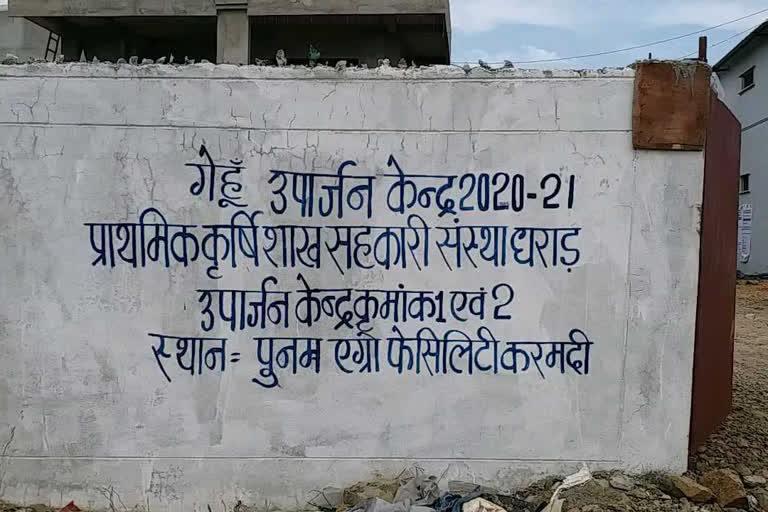 गेहूँ उपार्जन केन्द्र 2020-21
प्राथमिक कृर्षि शाख सहकारी संस्था धराड़
उपार्जन केन्द्र कृमांक 1 एवं 2
स्थान = पुनम एग्रो फेसिलिटी करमदी